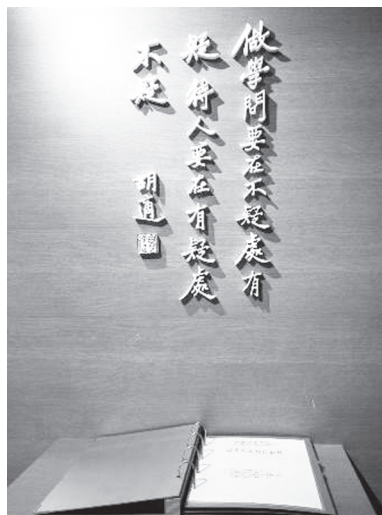 做學問要在不疑處有
疑待人要在有疑處
不疑 胡適